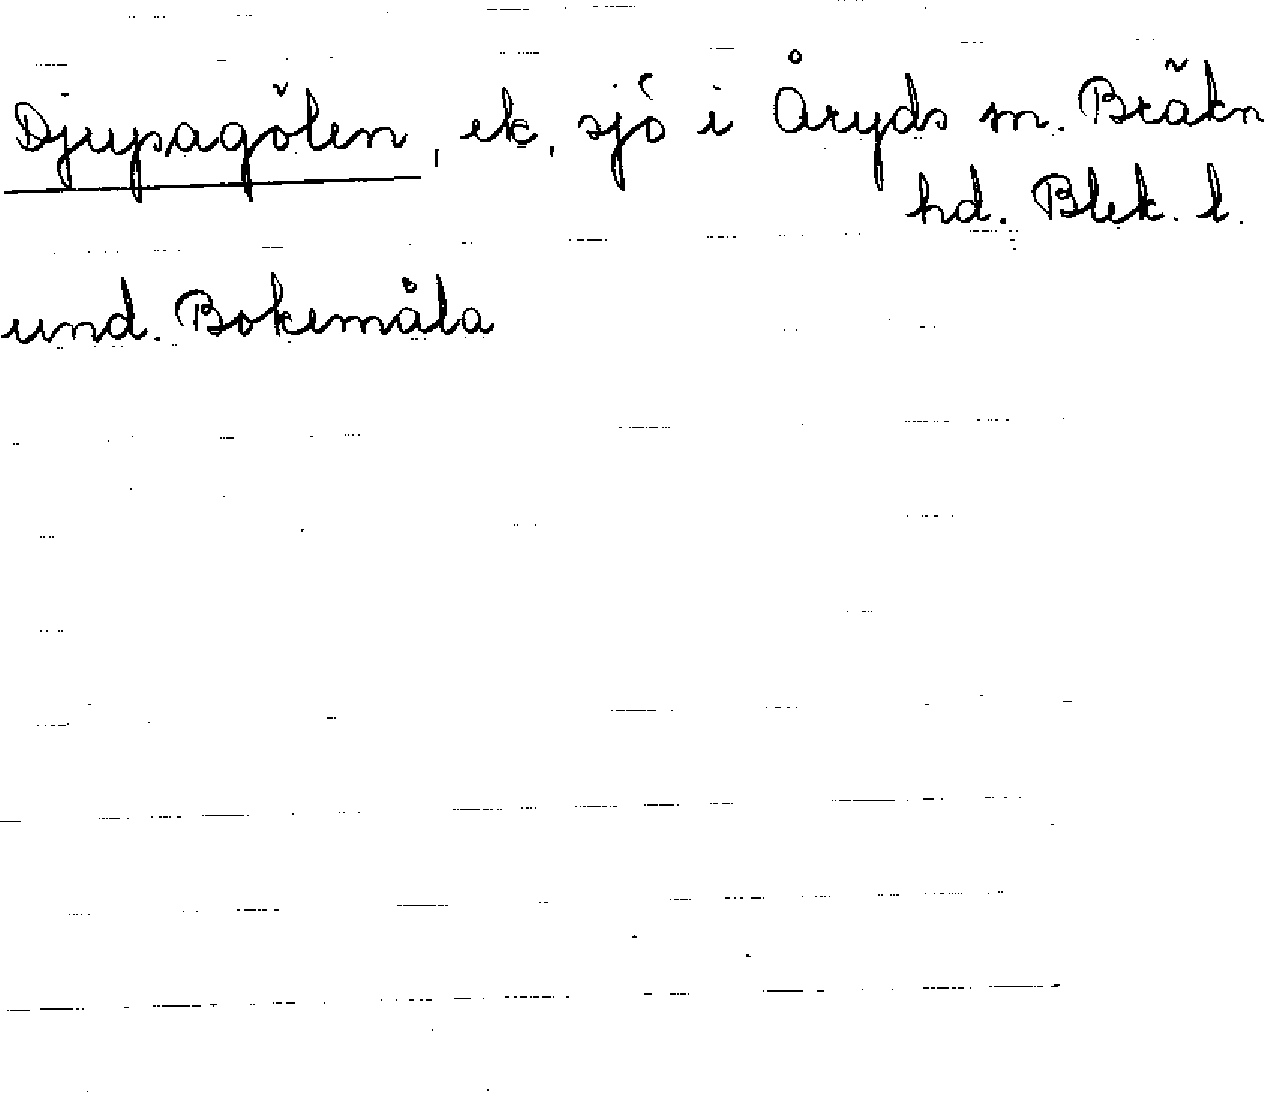 Djupagölen, ek, sjö i Åryds m. Bräkn
hd. Blek. l.
und. Bokemåla